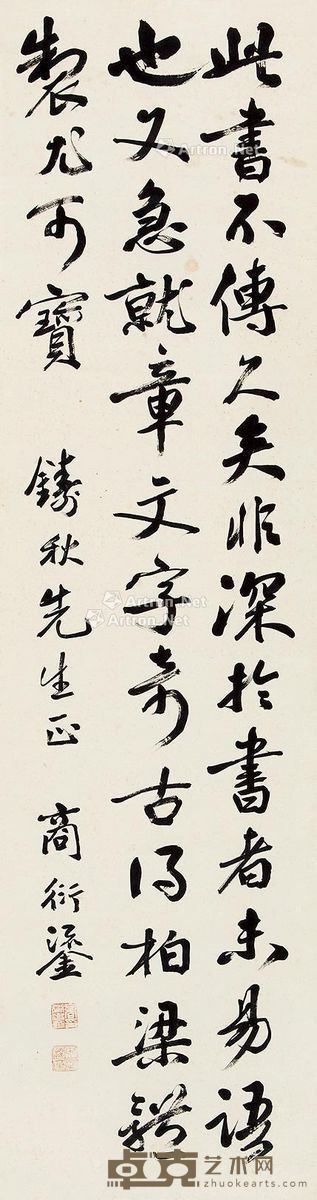 此書不傳久矣非深於書者未易語
也又急就章文字奇古得柏梁體
製尤可寶 鑄秋先生正 商衍鎏
Artron.Net
Artron.Net
Artron.Net
Artron.Net
卓克艺术网
www.zhuokearts.com